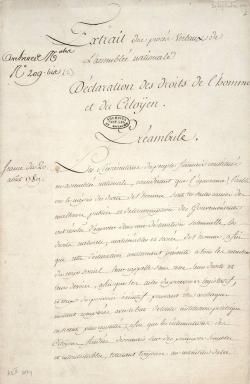 Extrait des procès Verbaux de
L'assemblée nationale
Annexe
N° 209 bis
Déclaration des droits de l'homme
et du Citoyen.
Préambule.
Séance du 20
août 1789.
Les Représentans du peuple françois constitués
en assemblée nationale, considérant que l'ignorance, l'oubli
ou le mépris des droits de l'homme sont les seules causes des
malheurs publics et de la corruption des Gouvernements
ont résolu d'exposer dans une déclaration solemnelle, les
droits naturels, inaliénables et sacrés de l'homme, afin
que cette déclaration constamment présente à tous les membres
du corps social, leur rappelle sans cesse leurs droits et
leurs devoirs, afin que les actes du pouvoir législatif,
et ceux du pouvoir exécutif, pouvant être à chaque
instant comparés avec le but de toute institution politique
en soient plus respectés, afin que les réclamations des
Citoyens, fondées désormais sur des principes simples
et incontestables, tournent toujours au maintien de la